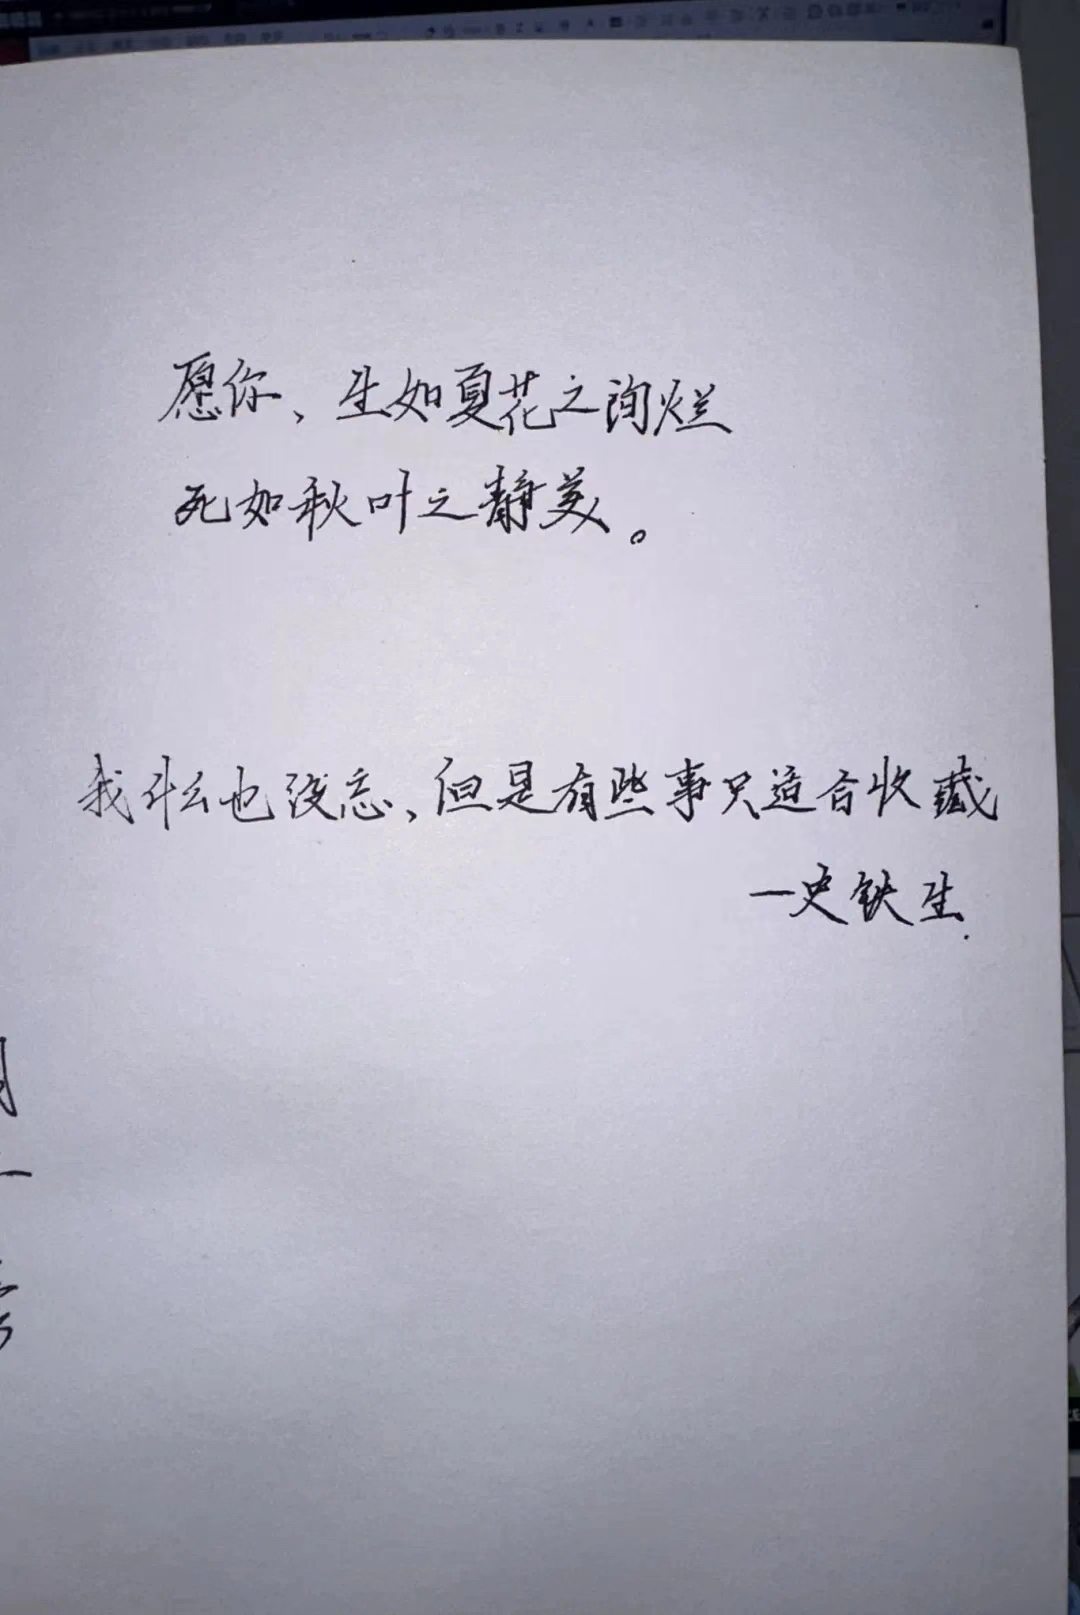 愿你、生如夏花之询烂
死如秋叶之静美。
我什么也没忘、但是有些事只适合收藏
一史铁生.